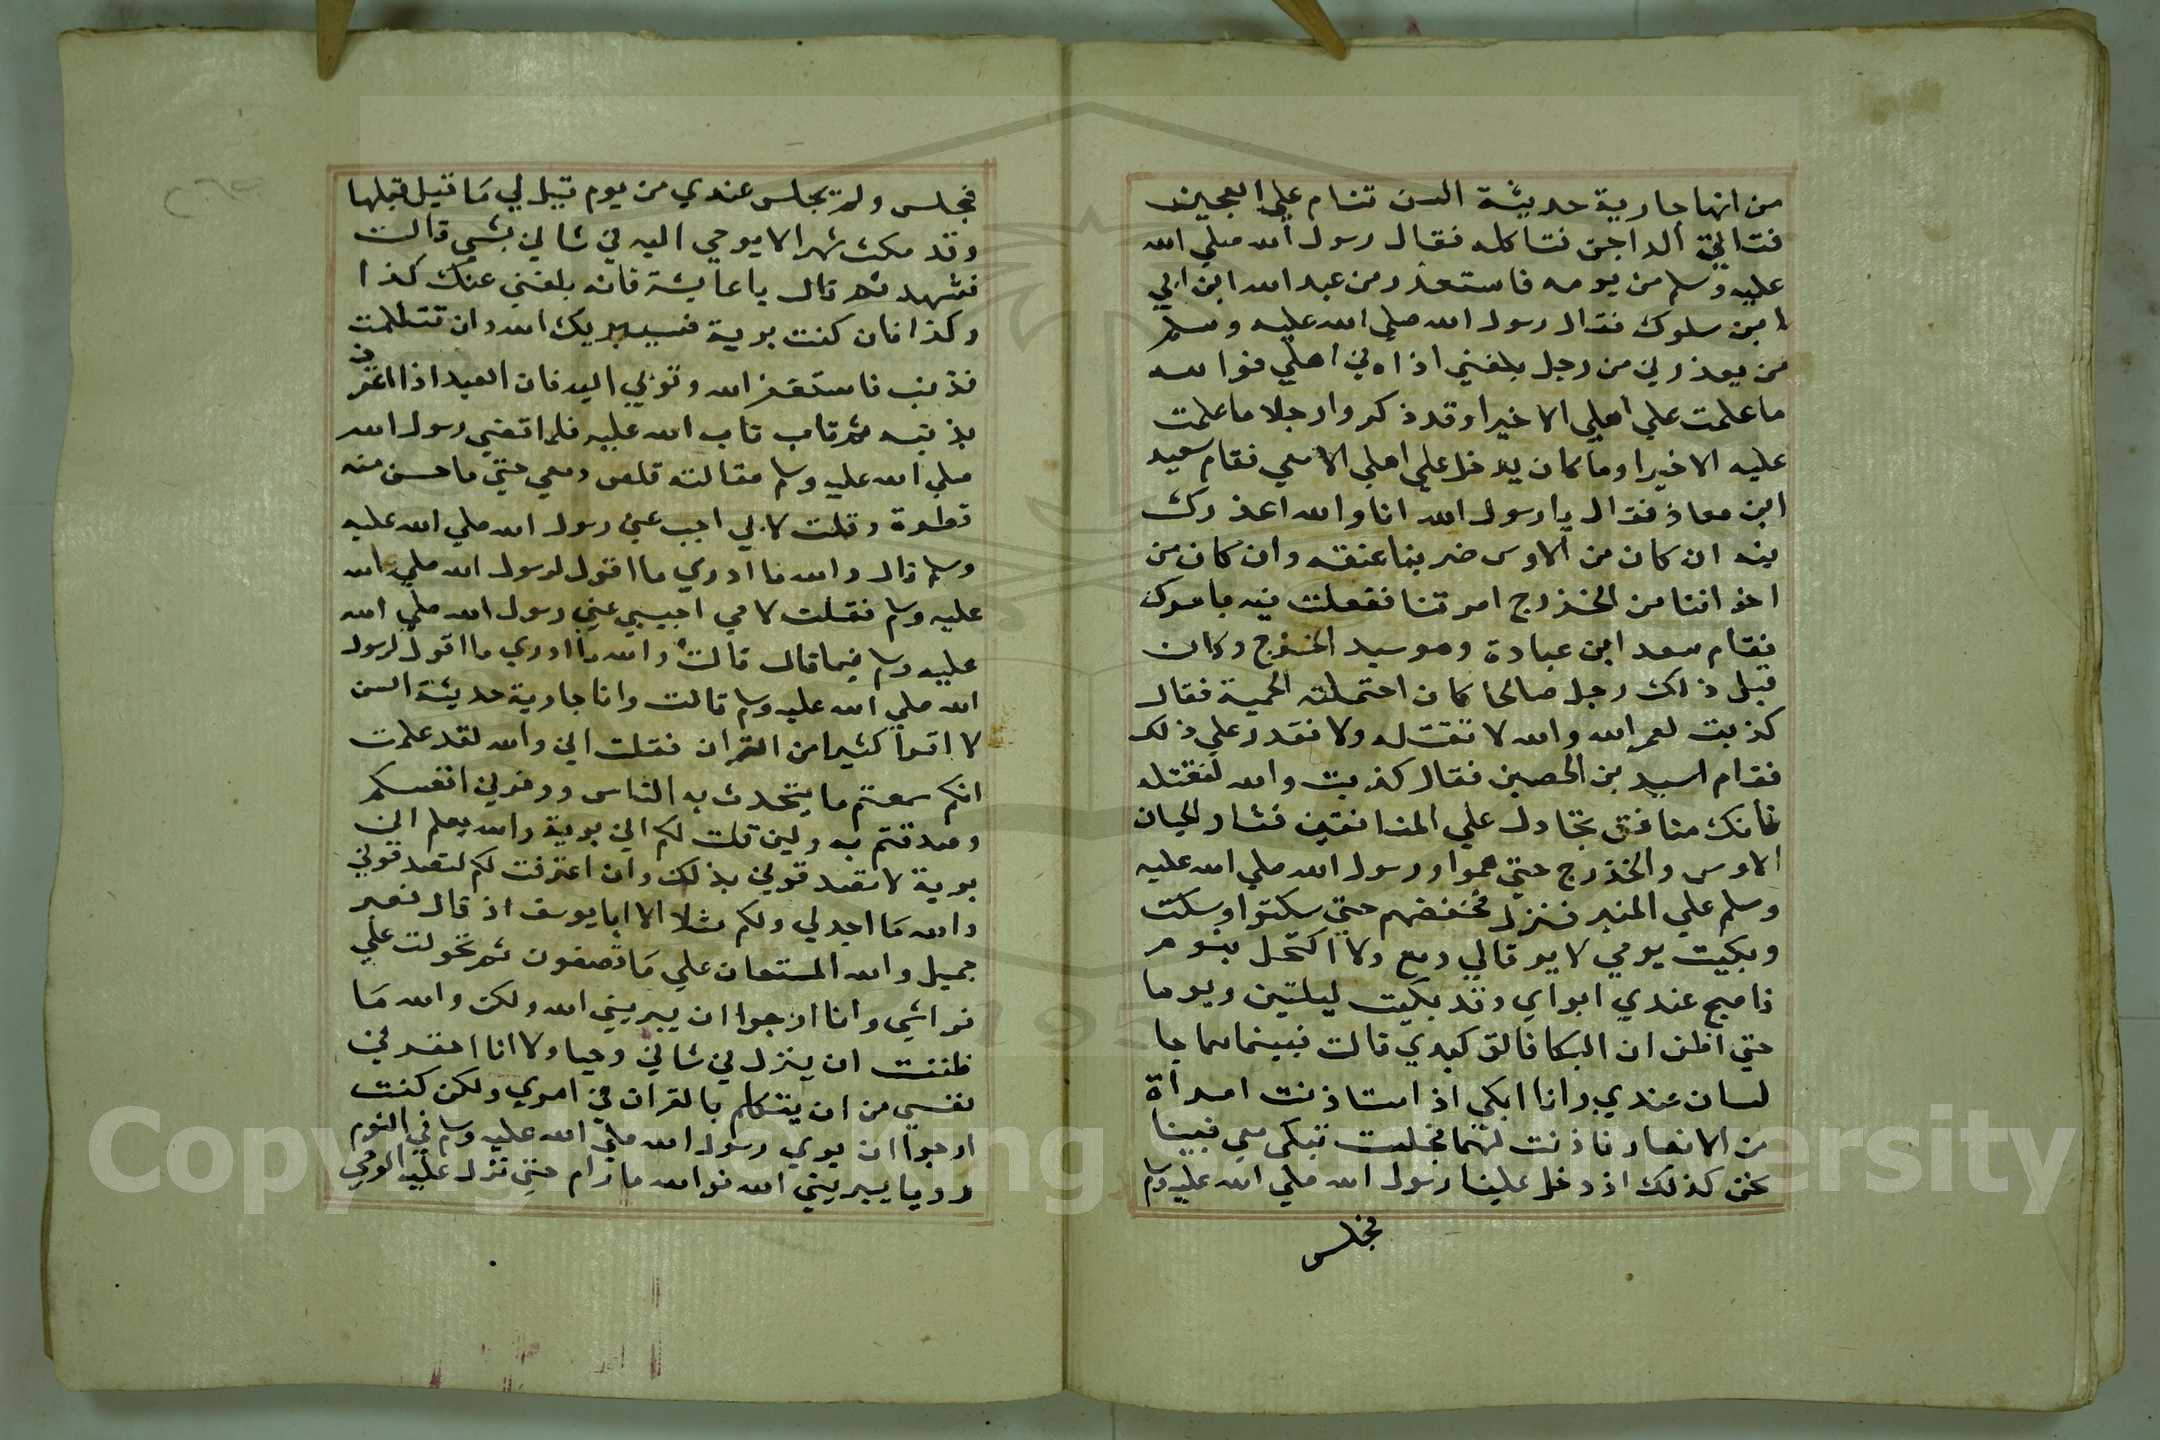 من انها جارية حديثة السن تنام علي العجين
فتاتي الداجن فتاكله فقال رسول الله صلي الله
عليه وسلم من يومه فاستعذر من عبد الله ابن ابي
ابن سلوك فقال رسول الله صلي الله عليه وسلم
من يعذرني من رجل بلغني اذاه في اهلي فوالله
ما علمت علي اهلي الا خيرا وقد ذكروا رجلا ما علمت
عليه الا خيرا وما كان يدخل علي اهلي الا معي فقام سعيد
ابن معاذ فقال يا رسول الله انا والله اعذرك
منه ان كان من الاوس ضربنا عنقه وان كان من
اخواننا من الخزرج امرتنا ففعلنا فيه بامرك
فقام سعد ابن عبادة وهو سيد الخزرج وكان
قبل ذلك رجل صالحا كان احتملته الحمية فقال
كذبت لعمر الله والله لا تقتله ولا تقدر علي ذلك
فقام اسيد بن الحصين فقال كذبت والله لنقتله
فانك منافق تجادل علي المنافقين فثار الحيان
الاوس والخزرج حتي هموا ورسول الله صلي الله عليه
وسلم علي المنبر فنزل فخفضهم حتي سكتوا وسكت
وبكيت يومي لا يرقالي دمع ولا اكتحل بنوم
فاصبح عندي ابواي وقد بكيت ليلتين ويوما
حتي اظن ان البكا فالق كبدي قالت فبينما هما جا
لسان عندي وانا ابكي اذ استاذنت امراة
من الانصار فاذنت لها فجلست تبكي معي فبينا
نحن كذلك اذ دخل علينا رسول الله صلي الله عليه وسلم
فجلس
فجلس ولم يجلس عندي من يوم قيل لي ما قيل قبلها
وقد مكث شهرا لا يوحي اليه في شاني بشي قالت
فتشهد ثم قال يا عايشة فانه بلغني عنك كذا
وكذا فان كنت برية فسيبريك الله وان تتظلمت
بذنب فاستغفر الله وتوبي اليه فان العبد اذا اعترف
بذنبه ثم تاب تاب الله عليه فلما قضي رسول الله
صلي الله عليه وسلم مقالته قلص دمعي حتي ما حسن منه
قطرة وقلت لابي اجب عني رسول الله صلي الله عليه
وسلم قال والله ما ادري ما اقول لرسول الله صلي الله
عليه وسلم فقلت لامي اجيبي عني رسول الله صلي الله
عليه وسلم فيما قال قالت والله ما ادري ما اقول لرسول
الله صلي الله عليه وسلم قالت وانا جارية حديثة السن
لا اقرا كثيرا من القران فقلت اني والله لقد علمت
انكم سمعتم ما يتحدث به الناس ووقر في انفسكم
وصدقتم به ولين قلت لكم اني برية والله يعلم اني
برية لا تصدقوني بذلك وان اعترفت لكم لتصدقوني
والله ما اجد لي ولكم مثلا الا ابا يوسف اذ قال فصبر
جميل والله المستعان علي ما تصفون ثم تحولت علي
فراشي وانا ارجوا ان يبريني الله ولكن والله ما
ظننت ان ينزل في شاني وحيا ولا انا احقر في
نفسي من ان يتكلم بالقران في امري ولكن كنت
ارجوا ان يري رسول الله صلي الله عليه وسلم في النوم
رويا يبريني الله فوالله ما رام حتي نزل عليه الوحي
Copyright © King Saud University